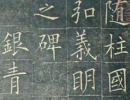 隨柱國
和義明
之碑
銀青